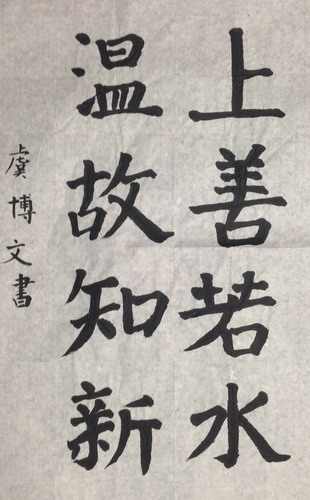 上善若水
温故知新
上虞博文書